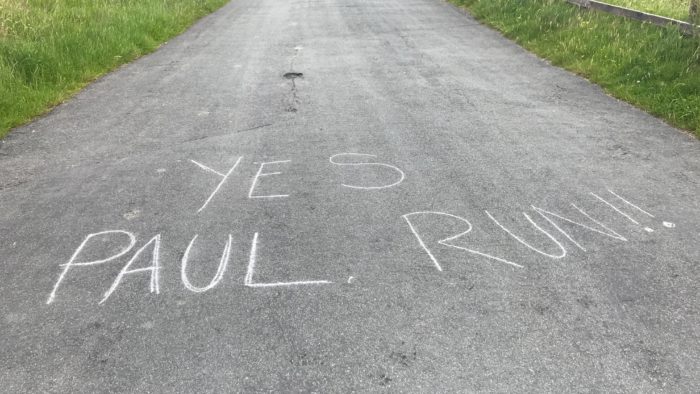 YES
PAUL. RUN!!